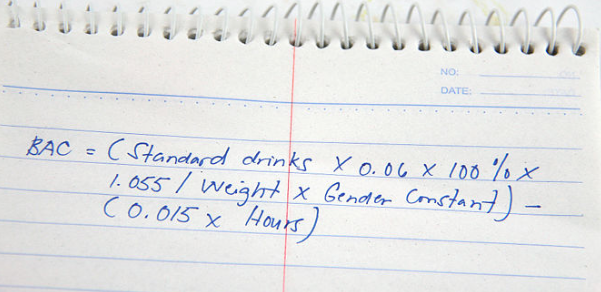 NO:
DATE:
BAC = (Standard drinks x 0.06 x 100% x
1.055 / Weight x Gender Constant) -
(0.015 x Hours)